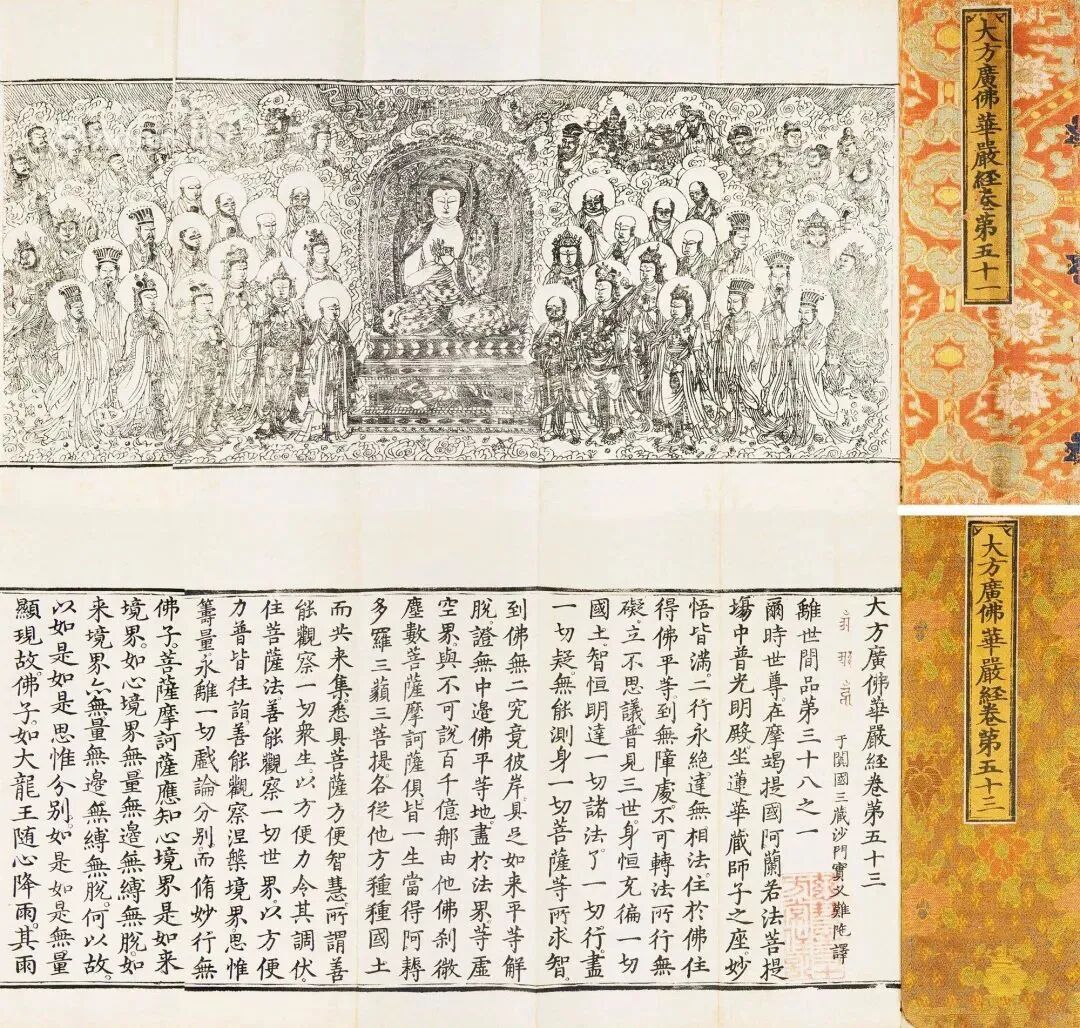 大方廣佛華嚴經卷第五十一
大方廣佛華嚴經卷第五十三
大方廣佛華嚴經卷第五十三
于闐國三藏沙門實叉難陁譯
離世間品第三十八之一
爾時世尊。在摩竭提國阿蘭若法菩提
塲中普光明殿。坐蓮華藏師子之座。妙
悟皆滿。二行永絕。達無相法。住於佛住。
得佛平等。到無障處。不可轉法。所行無
礙。立不思議。普見三世。身恒充徧一切
國土。智恒明達一切諸法。了一切行。盡
一切疑。無能測身。一切菩薩等所求智。
到佛無二究竟彼岸。具足如来平等解
脫。證無中邊佛平等地。盡於法界。等虛
空界。與不可說百千億那由他佛刹微
塵數菩薩摩訶薩俱。皆一生當得阿耨
多羅三藐三菩提。各從他方種種國土
而共来集。悉具菩薩方便智慧。所謂善
能觀察一切衆生。以方便力。令其調伏。
住菩薩法。善能觀察一切世界。以方便
力。普皆往詣。善能觀察涅槃境界。思惟
籌量。永離一切戲論分別。而脩妙行無
佛子。菩薩摩訶薩應知心境界。是如来
境界。如心境界。無量無邊。無縛無脫。如
来境界。亦無量無邊。無縛無脫。何以故。
以如是如是思惟分別。如是如是無量
顯現故。佛子。如大龍王。随心降雨。其雨